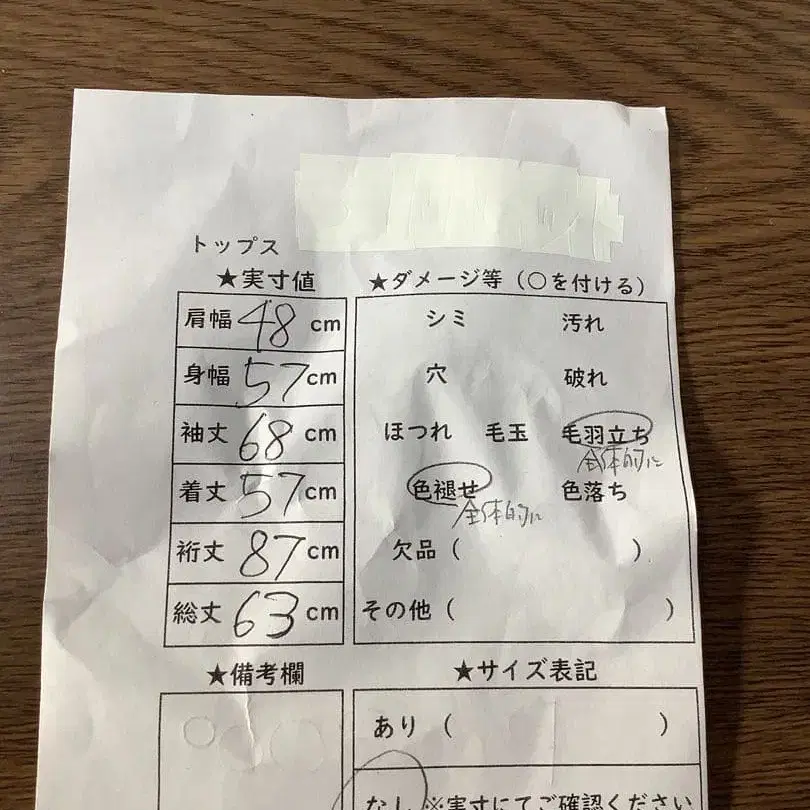 トップス
★実寸値
肩幅 48 cm
身幅 57 cm
袖丈 68 cm
着丈 57 cm
裄丈 87 cm
総丈 63 cm
★ダメージ等（○を付ける）
シミ 汚れ
穴 破れ
ほつれ 毛玉 毛羽立ち
全体的に
色褪せ 色落ち
全体的に
欠品（ ）
その他（ ）
★備考欄
★サイズ表記
あり（ ）
なし ※実寸にてご確認ください